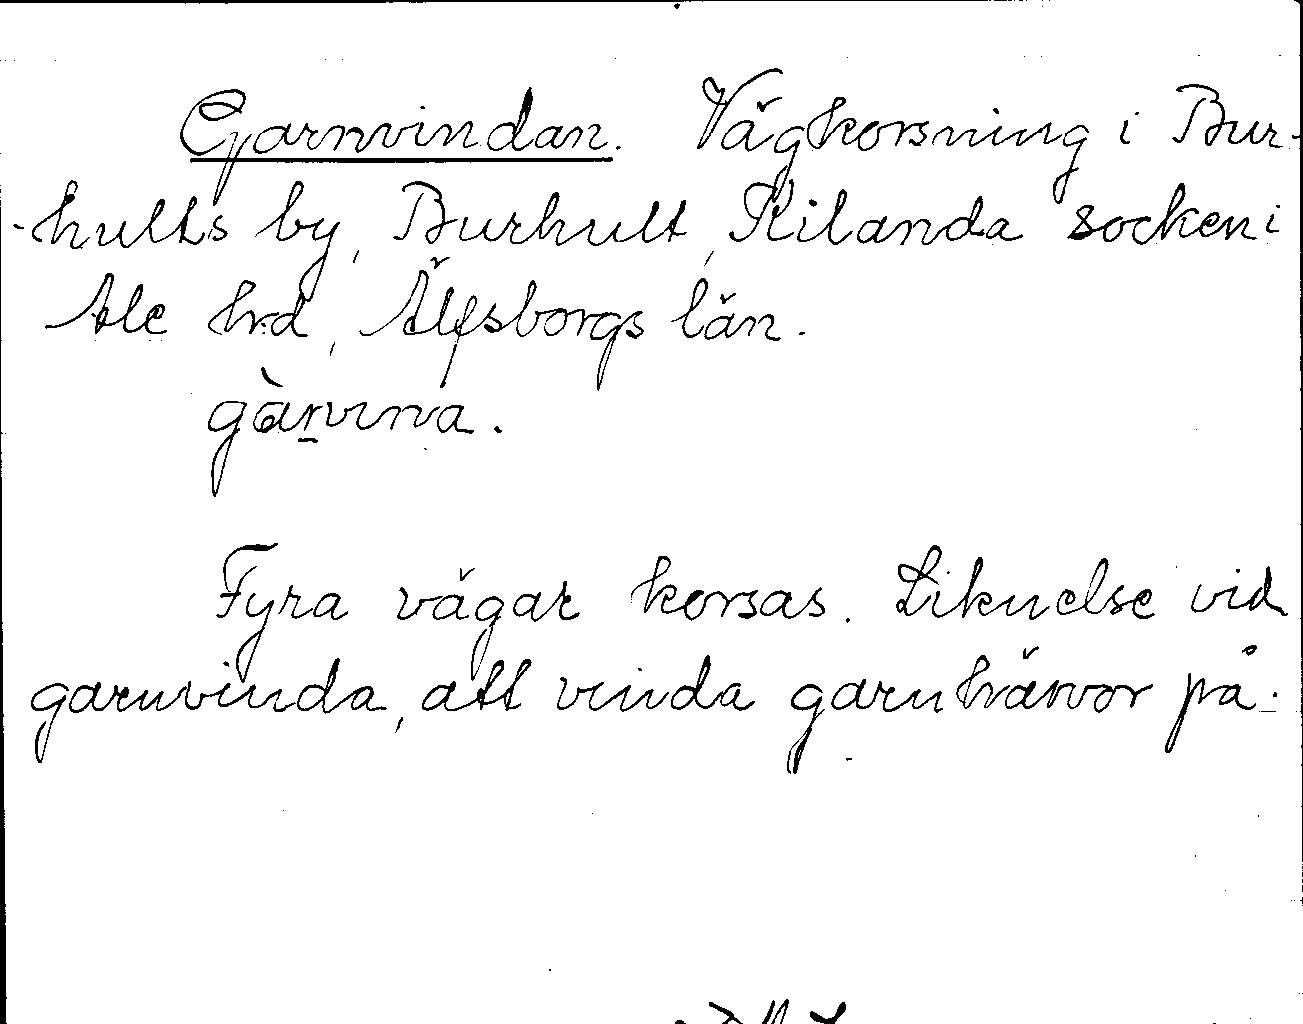 Garnvindan. Vägkorsning i Bur-
-hults by, Burhult, Kilanda socken i
Ale hrd, Älfsborgs län.
gàṟvına.
Fyra vägar korsas. Liknelse vid
garnvinda, att vinda garnhärvor på.